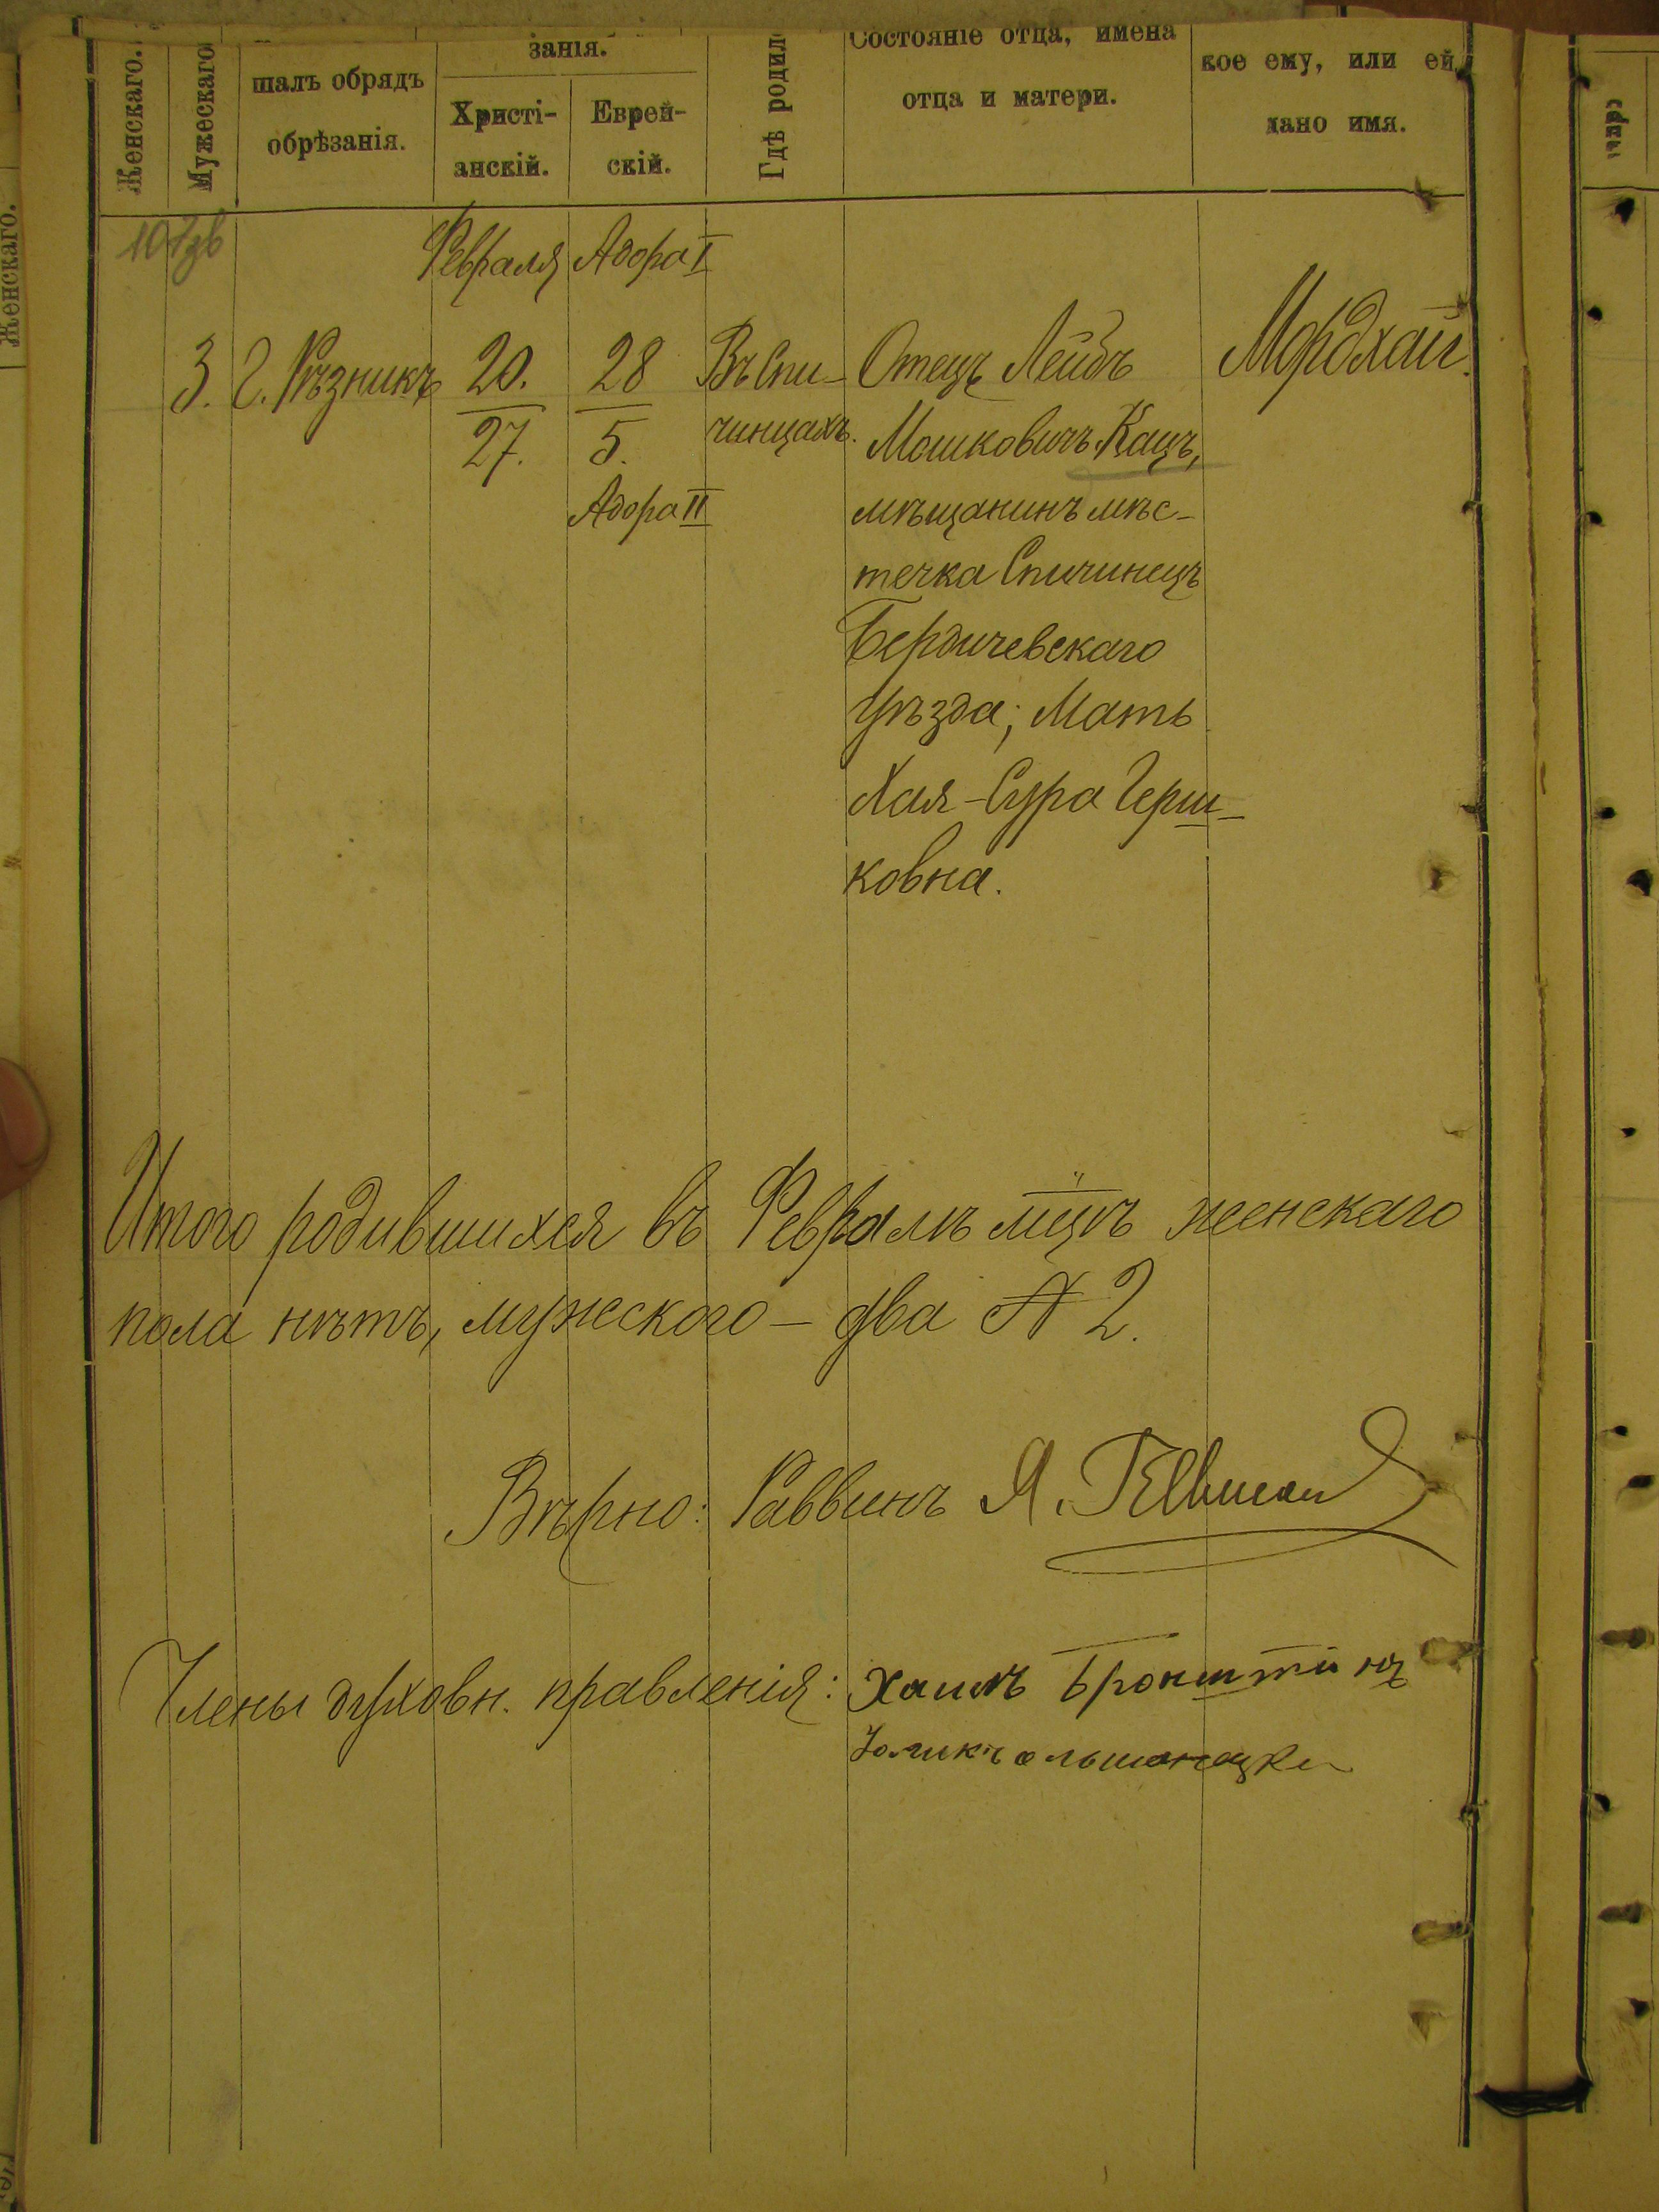 Женскаго.
Мужескаго
шалъ обрядъ
обрѣзанія.
занія.
Христі-
анскій.
Еврей-
скій.
Гдѣ родил
Состояніе отца, имена
отца и матери.
кое ему, или ей
дано имя.
Женскаго.
107зв
Февраля Адора I
3. Г. Рѣзникъ 20. 28 Въ Спи- Отецъ Лейбъ Мордхай.
27. 5. чинцахъ. Мошковичъ Кацъ,
Адора II мѣщанинъ мѣс-
течка Спичинецъ
Бердичевскаго
Уѣзда; Мать
Хая-Сура Герш-
ковна.
Итого родившихся въ Февралѣ мцѣ женскаго
пола нѣтъ, мужеского - два № 2.
Вѣрно: Раввинъ Я.
Члены духовн. правленія: Хаимъ Бронштинъ